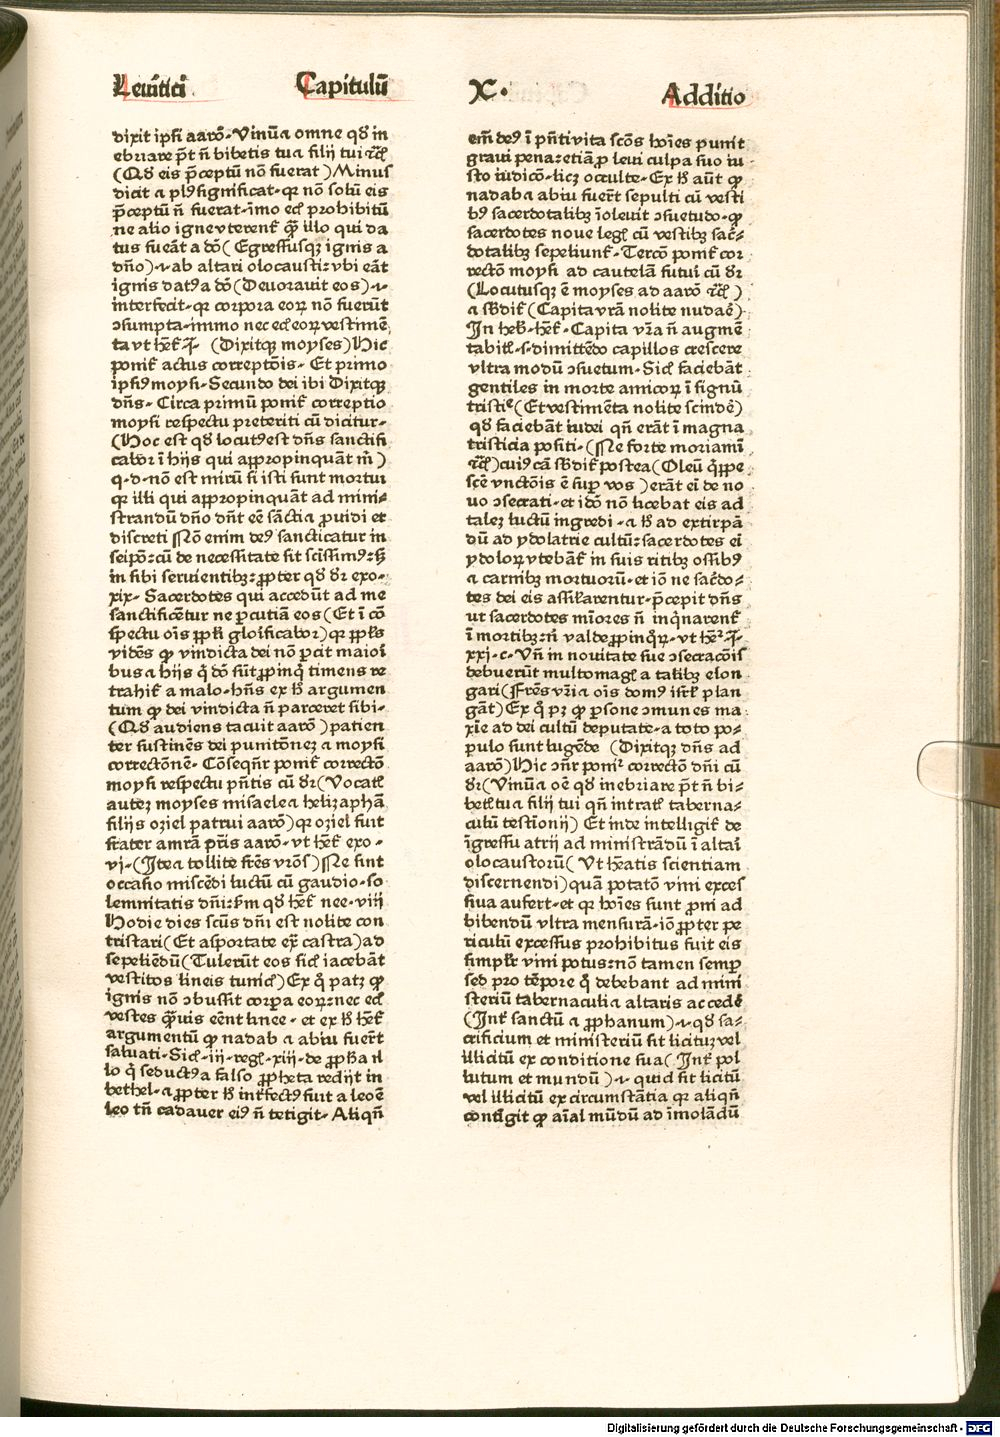 Leuitici Capitulū X. Additio
dixit ipsi aarō. Vinū a omne qḋ in
ebriare p̄t ñ bibetis tu a filij tui ⁊c̃
(Qḋ eis p̄ceptū nō fuerat) Minus
dicit a plꝰ significat. qꝛ nō solū eis
p̄ceptū ñ fuerat. īmo ecī prohibitū
ne alio igne vterent̄ q̄ illo qui da
tus fuēāt a dō (Egressusqꝫ ignis a
dño) .i. ab altari olocausti: vbi eāt
ignis datꝰ a dō (Deuorauit eos) .i.
interfecit. qꝛ corpora eoꝝ nō fuerūt
ꝯsumpta. immo nec ecī eoꝝ vestimē
ta vt hēt̄ .ī. (Dixitqꝫ moyses) Hic
ponit̄ actus correptōis. Et primo
ipsiꝰ moysi. Secundo dei ibi Dixitqꝫ
dñs. Circa primū ponit̄ correptio
moysi respectu preteriti cū dicitur.
(Hoc est qḋ locutꝰ est dñs sanctifi
cabor ī hijs qui appropinquāt m̄)
q. d. nō est mirū si isti sunt mortui
qꝛ illi qui appropinquāt ad mini
strandū dño dñt eē sācti a ꝓuidi et
discreti Nō enim deꝰ sancticatur in
seipō: cū de necessitate sit scissimꝰ: ꝫ
in sibi seruientibꝫ: ꝓpter qḋ dꝛ exo.
xix. Sacerdotes qui accedūt ad me
sanctificētur ne ꝑcutiā eos (Et ī cō
spectu oīs ppłi gloīficabor) qꝛ ppłs
vidēs ꝙ vindicta dei nō ꝑcit maioī
bus a hijs q̇ dō sūt ꝓpinq̇ timens re
trahit̄ a malo. hñs ex ḣ argumen
tum ꝙ dei vindicta ñ parceret sibi.
(Qḋ audiens tacuit aarō) patien
ter sustinēs dei punitōnez a moysi
correctōnē. Cōseqñr ponit̄ correctō
moysi respectu pñtis cū dꝛ (Vocatī
autez moyses misaele a helizaphā
filijs oziel patrui aarō) qꝛ oziel fuit
frater amrā pr̄is aarō. vt hēt̄ exo.
vj. (Ite a tollite frēs vrōs) Ne sint
occasio miscēdi luctū cū gaudio. so
lemnitatis dñi: ẜm qḋ hēt̄ nee. viij
Hodie dies scūs dñi est nolite con
tristari (Et asportate ex̄ castra) ad
sepeliēdū (Tulerūt eos sicī iacebāt
vestitos lineis tunicī) Ex q̇ patꝫ ꝙ
ignis nō ꝯbussit corꝑa eoꝝ: nec ecī
vestes q̄uis eēnt linee. et ex ḣ hēt̄
argumentū ꝙ nadab a abiu fuer̄t
saluati. Sicī .iij. regī. xiij. de ꝓpħa il
lo q̇ seductꝰ a falso ꝓpheta redijt in
bethel. a ꝓpter ḣ int̄fectꝰ fuit a leoē
leo tñ cadauer eiꝰ ñ tetigit. Aliqñ
em̄ deꝰ ī pñti vita scōs hoīes punit
graui pena: etiā ꝓ leui culpa suo iu
sto iudicō. licꝫ occulte. Ex ḣ aūt ꝙ
nadab a abiu fuer̄t sepulti cū vesti
bꝰ sacerdotalibꝫ īoleuit ꝯsuetudo. ꝙ
sacerdotes noue legī cū vestibꝫ sac̄
dotalibꝫ sepeliunt̄. Tercō ponit̄ cor
rectō moysi ad cautelā futuī cū dꝛ
(Locutusqꝫ ē moyses ad aarō ⁊c̃)
a sḃdit̄ (Capita vrā nolite nudaē)
In heb̄. hēt̄. Capita vr̄a ñ augmē
tabitī .s. dimittēdo capillos crescere
vltra modū ꝯsuetum. Sicī faciebāt
gentiles in morte amicoꝝ ī signū
tristiᵉ (Et vestimēta nolite scindē)
qḋ faciebāt iudei qñ erāt ī magna
tristicia positi. (Ne forte moriamī
⁊c̃) cuiꝰ cā sḃdit̄ postea (Oleū q̇ppe
scē vnctōis ē suꝑ vos) erāt eī de no
uo ꝯsecrati. et idō nō licebat eis ad
talez luctū ingredi. a ḣ ad extirpā
dū ad ydolatrie cultū: sacerdotes eī
ydoloꝝ vtebāt̄ in suis ritibꝫ ossibꝰ
a carnibꝫ mortuorū. et iō ne sac̄do
tes dei eis assiłarentur. p̄cepit dñs
ut sacerdotes mīores ñ inq̇narent̄
ī mortibꝫ: nⁱ valde ꝓpinq̇ꝝ. vt hēꝛ .ī.
xxj. c. Vñ in nouitate sue ꝯsecracōis
debuerūt multomagī a talibꝫ elon
gari (Frēs vr̄i a oīs domꝰ isrł plan
gāt) Ex q̇ pꝫ ꝙ ꝑsone ꝯmunes ma
xīe ad dei cultū deputate. a toto po
pulo sunt lugēde (Dixitqꝫ dñs ad
aarō) Hic ꝯñr poniꝛ correctō dñi cū
dꝛ (Vinū a oē qḋ inebriare p̄t ñ bi
betī tu a filij tui qñ intratī taberna
culū testīonij) Et inde intelligit̄ de
īgressu atrij ad ministrādū ī altaī
olocaustorū (Vt hēatis scientiam
discernendi) quā potatō vini exces
siua aufert. et qꝛ hoīes sunt ꝓni ad
bibendū vltra mensurā. iō ꝓpter pe
riculū excessus prohibitus fuit eis
simplr̄ vini potus: nō tamen semꝑ
sed pro tēpore q̇ debebant ad mini
steriū tabernaculi a altaris accedē
(Int̄ sanctū a ꝓphanum) .i. qḋ sa
crificium et ministeriū sit licitūꝫ vel
illicitū ex conditione sua (Int̄ pol
lutum et mundū) .i. quid sit licitū
vel illicitū ex circumstātia qꝛ aliqñ
contīgit ꝙ aīal mūdū ad īmolādū
Digitalisierung gefördert durch die Deutsche Forschungsgemeinschaft - DFG